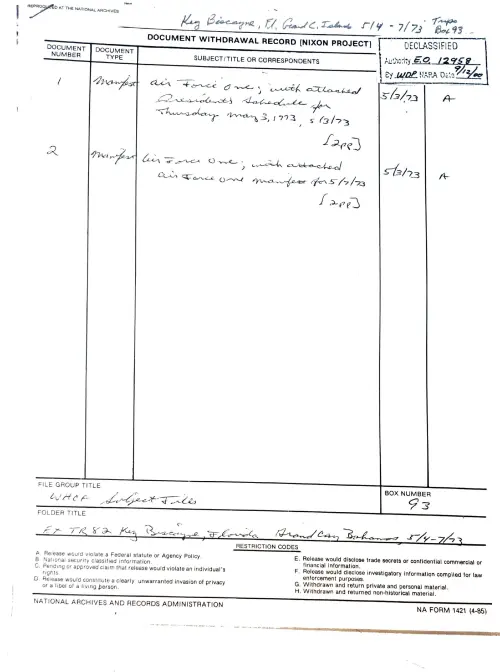 REPRODUCED AT THE NATIONAL ARCHIVES
Key Biscayne, Fl, Grand C. Islands 5/4 - 7/73 Trips
Box 93
DOCUMENT WITHDRAWAL RECORD [NIXON PROJECT]
DOCUMENT NUMBER
DOCUMENT TYPE
SUBJECT/TITLE OR CORRESPONDENTS
DECLASSIFIED
Authority E.O. 12958
By WDP NARA Date 9/12/00
1 Manifest Air Force One; with attached 5/3/73 A
President's Schedule for
Thursday May 3, 1973, 5/3/73
[2pp]
2 Manifest Air Force One; with attached 5/3/73 A
Air Force One manifest for 5/7/73
[2pp]
FILE GROUP TITLE
WHCF Subject Files
BOX NUMBER
93
FOLDER TITLE
Ex TR 82 Key Biscayne, Florida Grand Cay, Bahamas, 5/4-7/73
RESTRICTION CODES
A. Release would violate a Federal statute or Agency Policy.
B. National security classified information.
C. Pending or approved claim that release would violate an individual's
rights.
D. Release would constitute a clearly unwarranted invasion of privacy
or a libel of a living person.
E. Release would disclose trade secrets or confidential commercial or
financial information.
F. Release would disclose investigatory information compiled for law
enforcement purposes.
G. Withdrawn and return private and personal material.
H. Withdrawn and returned non-historical material.
NATIONAL ARCHIVES AND RECORDS ADMINISTRATION
NA FORM 1421 (4-85)